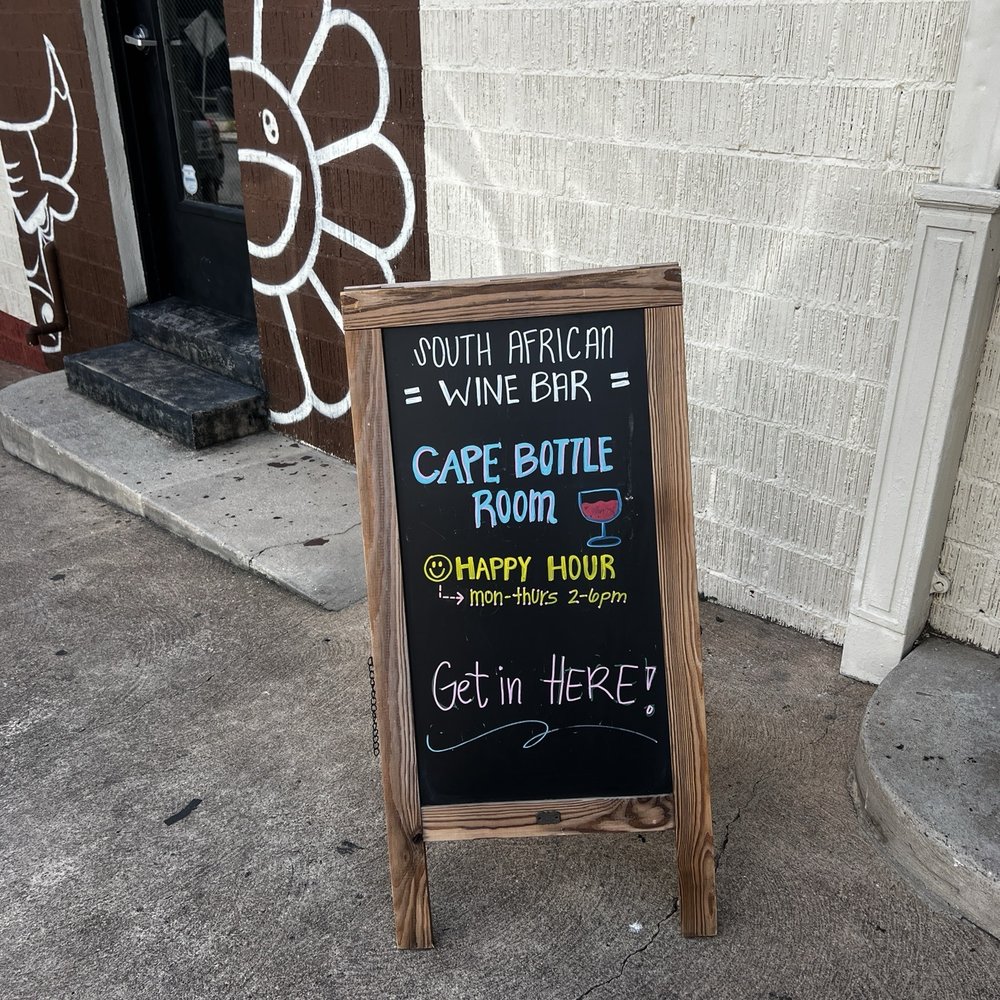 SOUTH AFRICAN
= WINE BAR =
CAPE BOTTLE
ROOM
HAPPY HOUR
mon-thurs 2-6pm
Get in HERE!